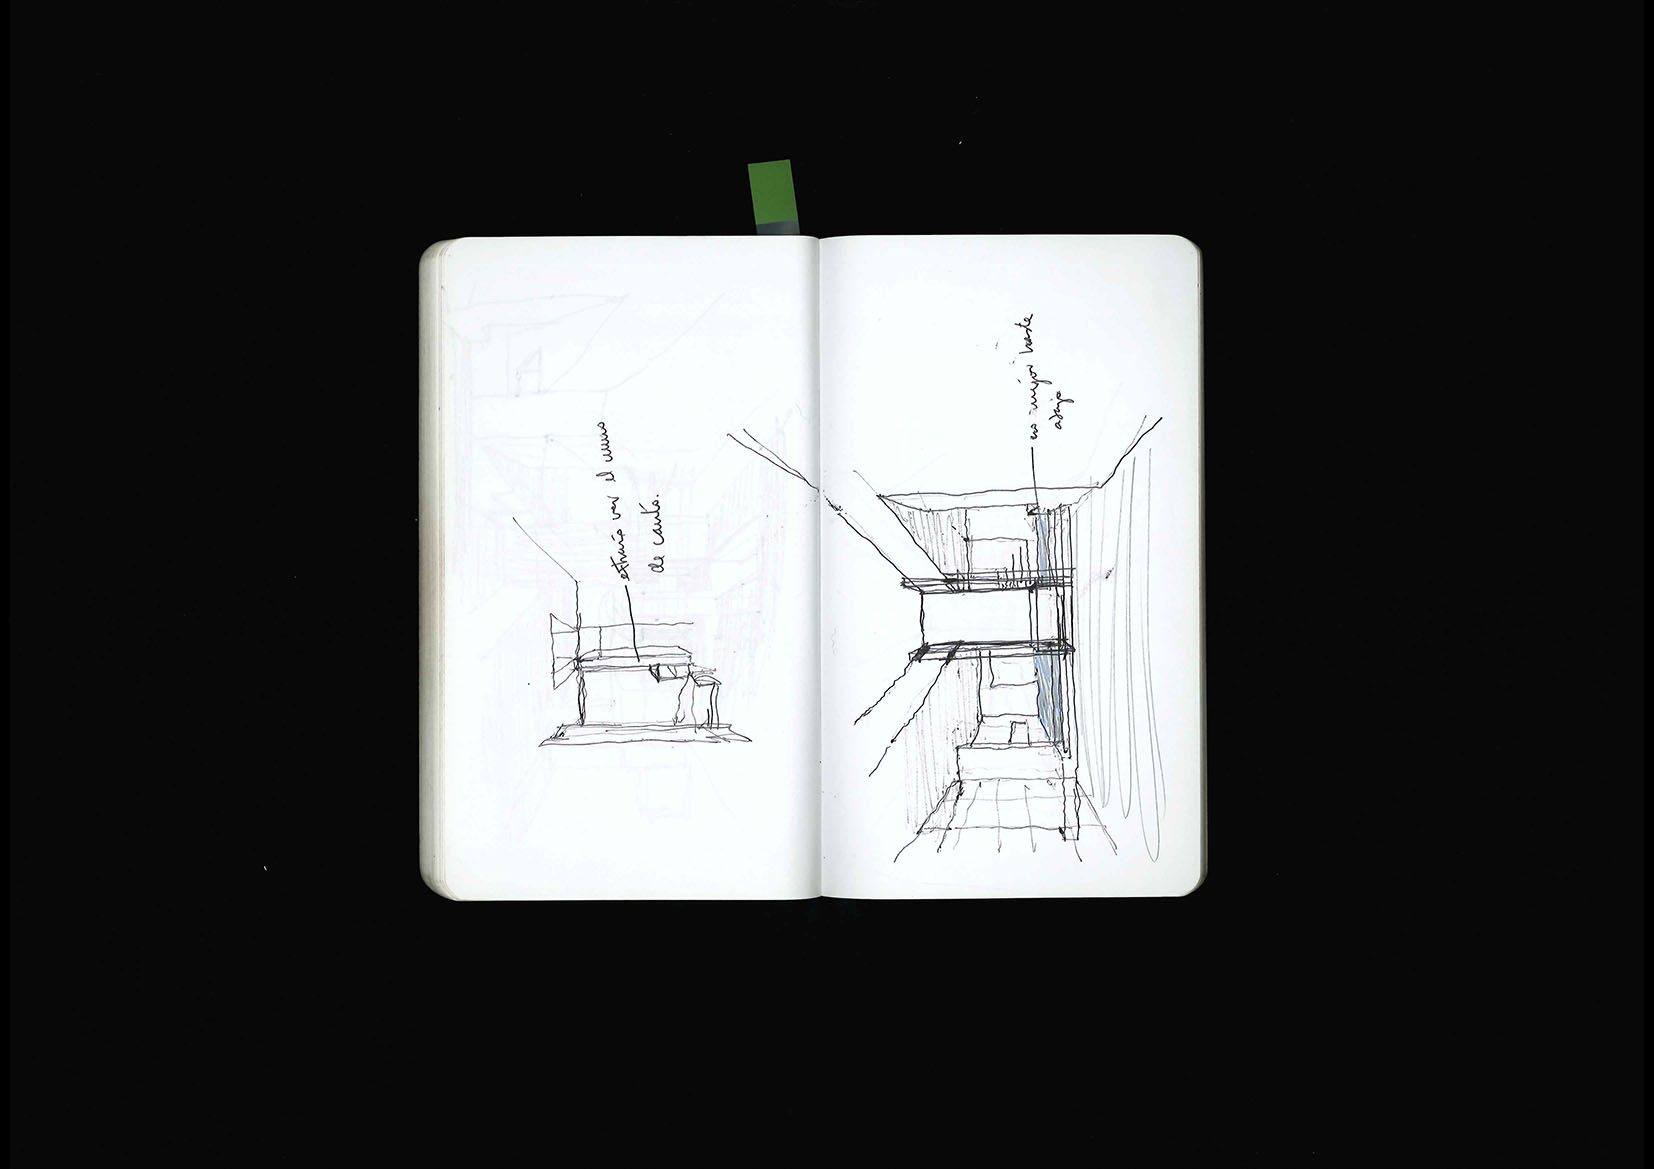 extraño ver el muro
de canto.
es mejor hasta
abajo